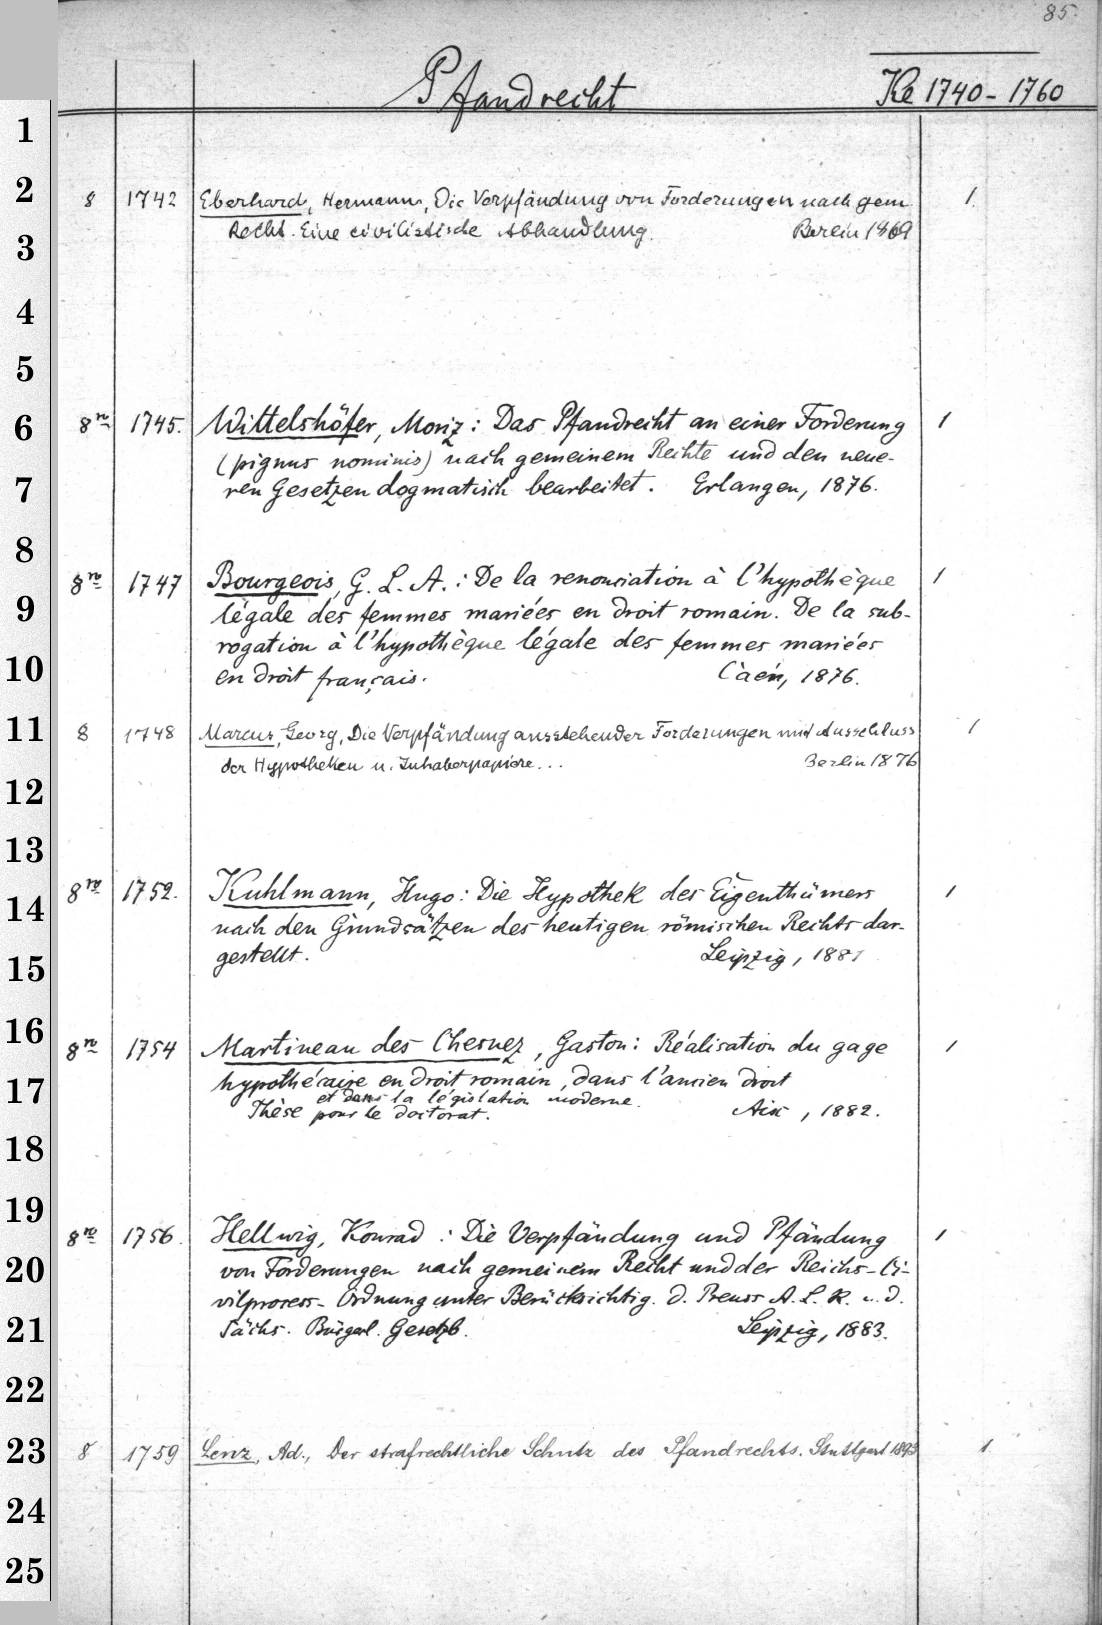 85.
Pfandrecht Ke 1740 - 1760
1
2
3
4
5
6
7
8
9
10
11
12
13
14
15
16
17
18
19
20
21
22
23
24
25
8 1742 Eberhard, Hermann, Die Verpfändung von Forderungen nach gem 1.
Recht. Eine civilistische Abhandlung. Berlin 1869
8º 1745. Wittelshöfer, Moriz: Das Pfandrecht an einer Forderung 1
(pignus nominis) nach gemeinem Rechte und den neue-
ren Gesetzen dogmatisch bearbeitet. Erlangen, 1876.
8º 1747 Bourgeois, G. L. A.: De la renonciation à l'hypothèque 1
légale des femmes mariées en droit romain. De la sub-
rogation à l'hypothèque légale des femmes mariées
en droit français. Caen, 1876.
8 1748 Marcus, Georg, Die Verpfändung ausstehender Forderungen mit Ausschluss 1
der Hypotheken u. Inhaberpapiere... Berlin 1876
8º 1752. Kuhlmann, Hugo: Die Hypothek des Eigenthümers 1
nach den Grundsätzen des heutigen römischen Rechts dar-
gestellt. Leipzig, 1881
8º 1754 Martineau des Chesnez, Gaston: Réalisation du gage 1
hypothécaire en droit romain, dans l'ancien droit
et dans la législation moderne.
Thèse pour le doctorat. Aix, 1882.
8º 1756. Hellwig, Konrad: Die Verpfändung und Pfändung 1
von Forderungen nach gemeinem Recht und der Reichs-Ci-
vilprocess-Ordnung unter Berücksichtig. d. Preuss A. L. R. u. d.
Sächs. Bürgerl. Gesetzb. Leipzig, 1883.
8 1759 Lenz, Ad., Der strafrechtliche Schutz des Pfandrechts. Stuttgart 1893 1.